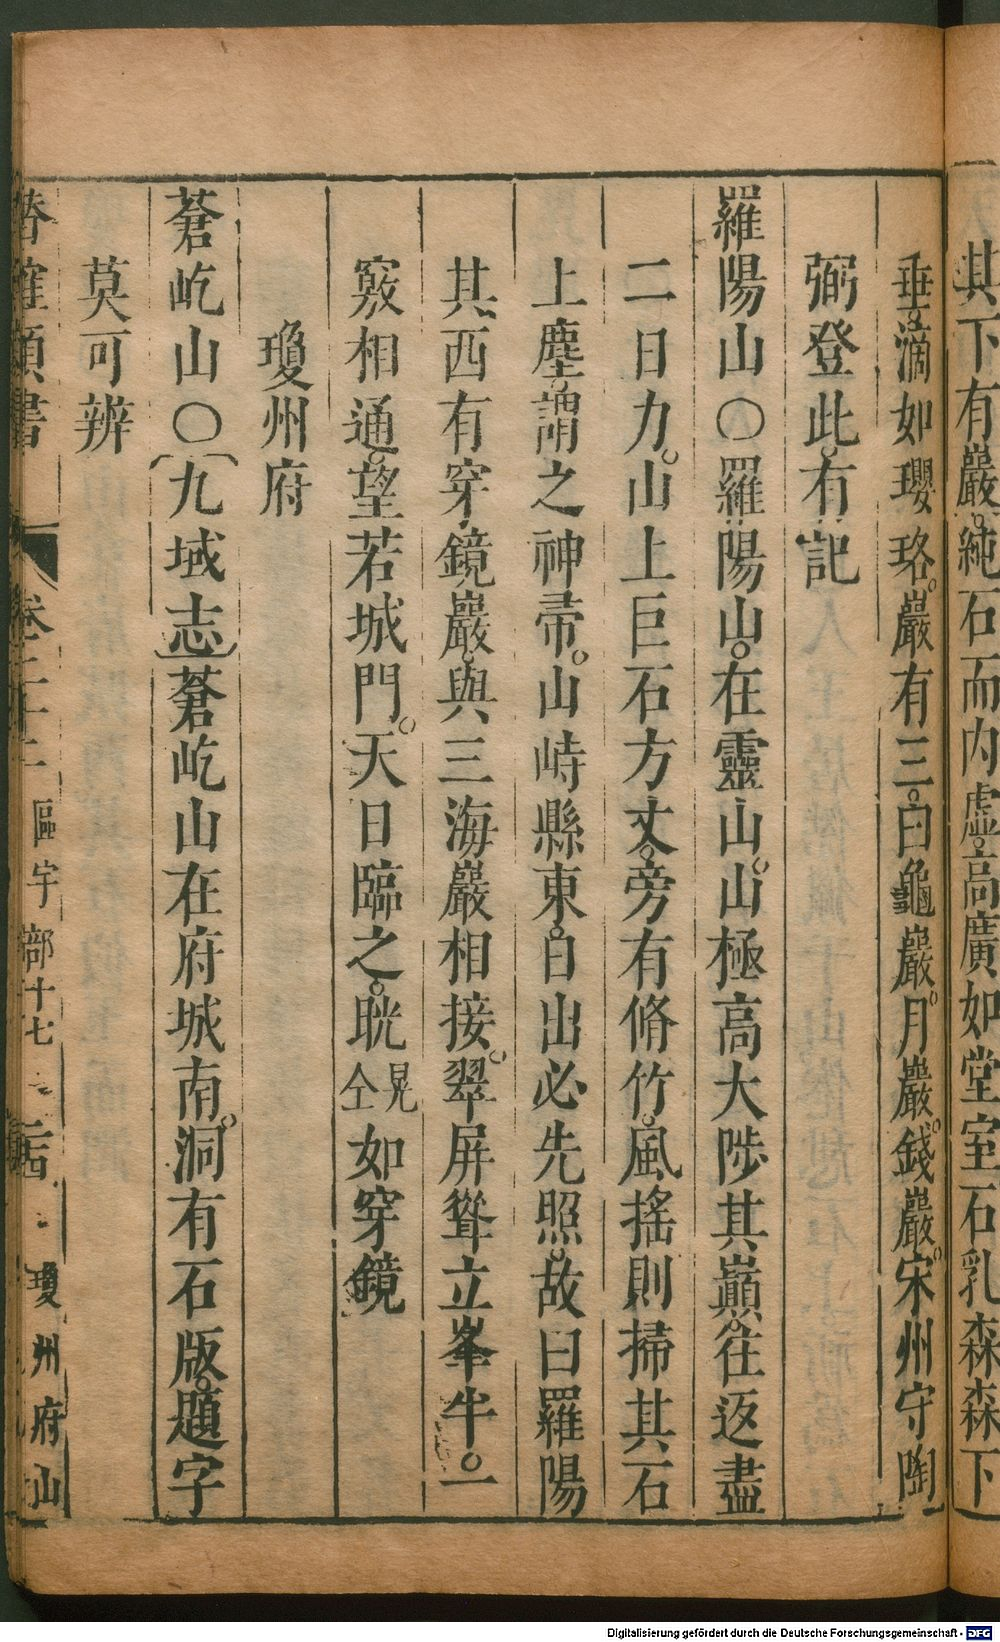 其下有巖。純石而内虚。高廣如堂室石乳森森下
垂。滴如瓔珞。巖有三。曰龜巖。月巖。錢巖。宋州守陶
弼登此。有記
羅陽山○羅陽山。在靈山。山極高大陟其巔。往返盡
二日力。山上巨石方丈。旁有脩竹。風搖則掃其石
上塵。謂之神帚。山峙縣東。日出必先照。故曰羅陽
其西有穿鏡巖。與三海巖相接。翠屏聳立峯半。一
竅相通。望若城門。天日臨之。晄晃仝如穿鏡
瓊州府
蒼屹山○九域志蒼屹山在府城南。洞有石版。題字
莫可辨
卷二十二 區宇部十七 瓊州府山
Digitalisierung gefördert durch die Deutsche Forschungsgemeinschaft - DFG